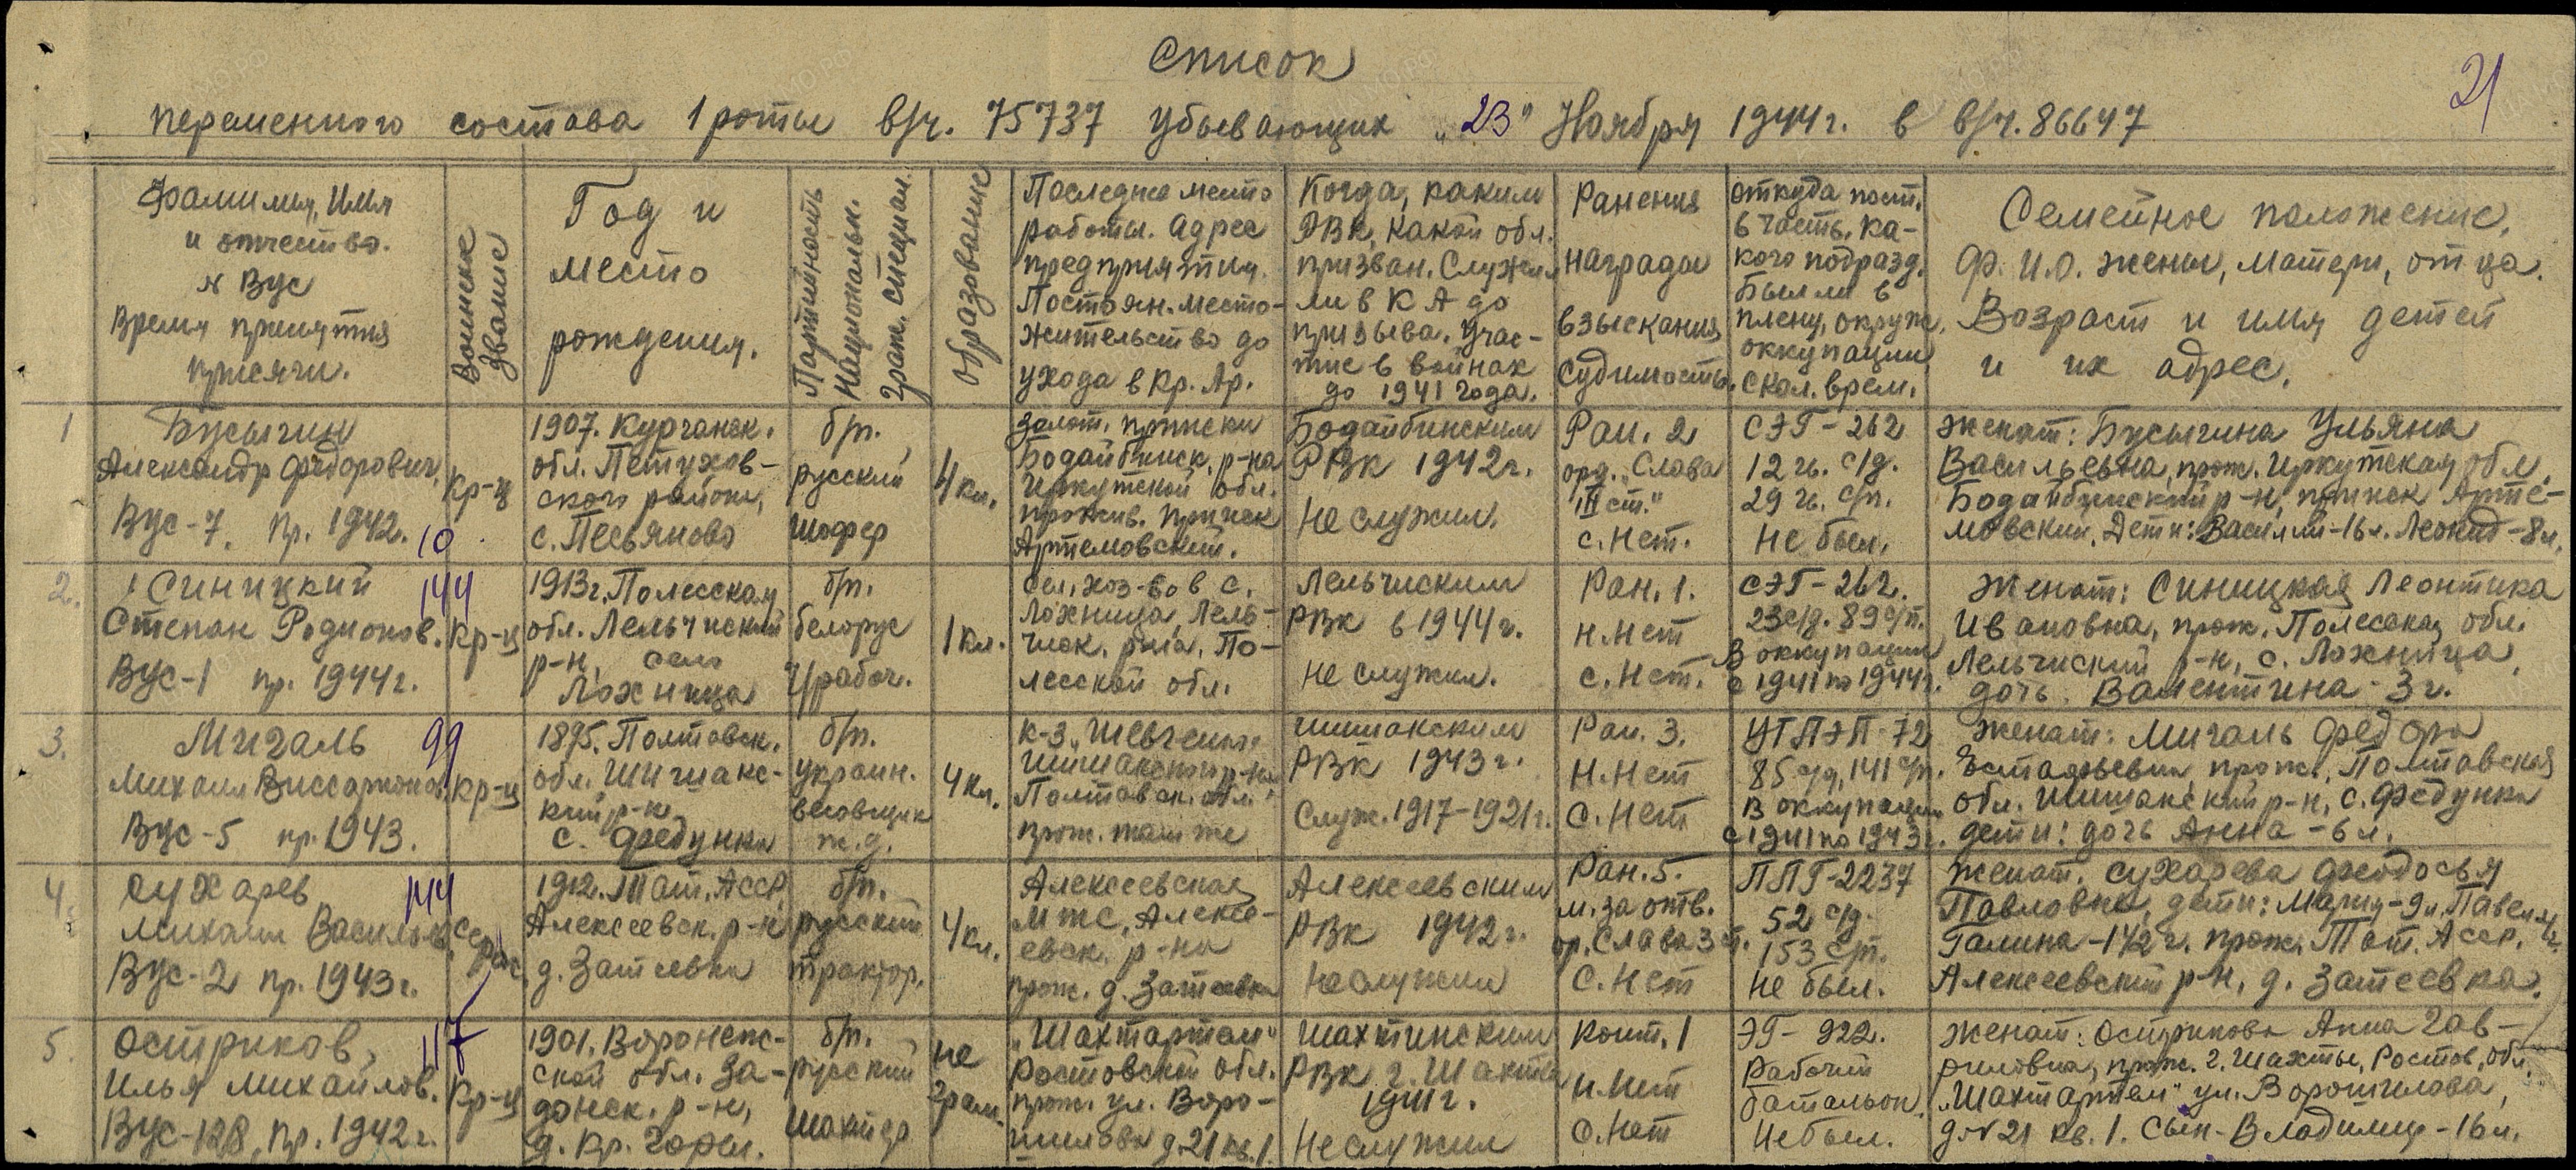 Список
21
переменного состава 1 роты в/ч. 75737 убывающих "23" Ноября 1944г. в в/ч. 86647
Фамилия, Имя
и отчество.
№ Вус
Время принятия
присяги.
Воинское
звание
Год и
место
рождения.
Партийность
Национальн.
Граж. специал.
Образование
Последнее место
работы. Адрес
предприятия.
Постоян. место-
жительство до
ухода в Кр. Ар.
Когда, каким
РВК, какой обл.
призван. Служил
ли в КА до
призыва. Учас-
тие в войнах
до 1941 года.
Ранения
награды
взыскания
судимость.
откуда пост.
в часть. Ка-
кого подразд.
Был ли в
плену, окруж.
оккупации
скол. врем.
Семейное положение.
Ф. И.О. жены, матери, отца.
Возраст и имя детей
и их адрес.
1
Бусыгин
Александр Федорович,
Вус-7. пр. 1942. 10
кр-ц
1907. Курганск.
обл. Петухов-
ского района,
с. Песьяново
б/п.
русский
шофер
4 кл.
Золот. прииски
Бодайбинск. р-на
Иркутской обл.
прожив. прииск
Артемовский.
Бодайбинским
РВК 1942г.
Не служил.
Ран. 2
орд. „Слава
III ст."
с. Нет.
СЭГ-262
12 гв. с/д.
29 гв. с/п.
Не был.
Женат: Бусыгина Ульяна
Васильевна, прож. Иркутская обл,
Бодайбинский р-н, прииск Арте-
мовский. Дети: Василий-16л. Леонид-8л.
2.
Синицкий 144
Степан Родионов.
Вус-1 пр. 1944г.
кр-ц
1913г. Полесская
обл. Лельчиский
р-н, село
Ложница
б/п.
белорус
ч/рабоч.
1 кл.
сел. хоз-во в с.
Ложница, Лель-
чиск. р-на, По-
лесской обл.
Лельчиским
РВК в 1944г.
не служил.
Ран. 1.
н. Нет
с. Нет.
СЭГ-262.
23 с/д. 89 с/п.
В оккупации
с 1941 по 1944г.
Женат: Синицкая Леонтика
Ивановна, прож. Полесская обл.
Лельчиский р-н, с. Ложница,
дочь. Валентина - 3г.
3.
Мигаль 99
Михаил Виссарионов.
Вус-5 пр. 1943.
кр-ц
1895. Полтавск.
обл. Шишакс-
кий р-н
с. Федунки
б/п.
украин.
весовщик
ж.д.
4 кл.
к-з „Шевченко"
Шишакского р-на
Полтавск. обл.
прож. там же
Шишакским
РВК 1943г.
Служ. 1917-1921г.
Ран. 3.
Н. Нет
С. Нет
УТПЭП-72
85 с/д, 141 с/п.
В оккупации
с 1941 по 1943г.
Женат: Мигаль Федора
Естафьевна прож. Полтавская
обл. Шишакский р-н, с. Федунки
дети: дочь Анна - 6л.
4.
Сухарев 144
Михаил Васильев.
Вус-2 пр. 1943г.
Серж.
1912. Тат. Асср
Алексеевск. р-н
д. Затеевка
б/п.
русский
трактор.
4 кл.
Алексеевская
МТС, Алексе-
евск. р-на
прож. д. Затеевка
Алексеевским
РВК 1942г.
Не служил
Ран. 5.
м. за отв.
ор. Слава 3 ст.
С. Нет
ППГ-2237
52 с/д.
153 с/п.
Не был.
Женат. Сухарева Феодосья
Павловна, дети: Мария-9л. Павел
Галина-1 1/2 г. прож. Тат. Асср.
Алексеевский р-н, д. Затеевка.
5.
Остриков, 117
Илья Михайлов.
Вус-128, пр. 1942г.
Кр-ц
1901. Воронежс-
ской обл. За-
донск. р-н,
д. Кр. Горел.
б/п.
русский
шахтер
не
грам.
„Шахтартем"
Ростовской обл.
прож. ул. Воро-
шилова д. 21 кв. 1.
Шахтинским
РВК г. Шахты
1941г.
Не служил
Конт. 1
Н. Нет
С. Нет
ЭГ- 922.
Рабочий
батальон.
Не был.
Женат: Острикова Анна Гав-
риловна, прож. г. Шахты, Ростов. обл.
„Шахтартем" ул. Ворошилова,
д. № 21 кв. 1. Сын- Владимир - 16л.